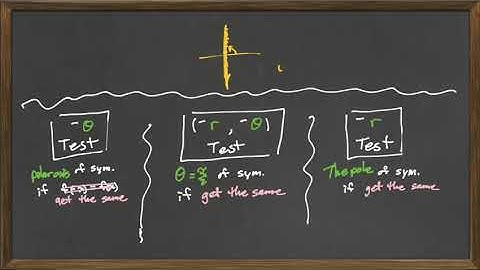 -θ
Test
polar axis of sym.
if
get the same
(-r, -θ)
Test
θ = π/2 of sym.
if get the same
-r
Test
The pole of sym.
if get the same